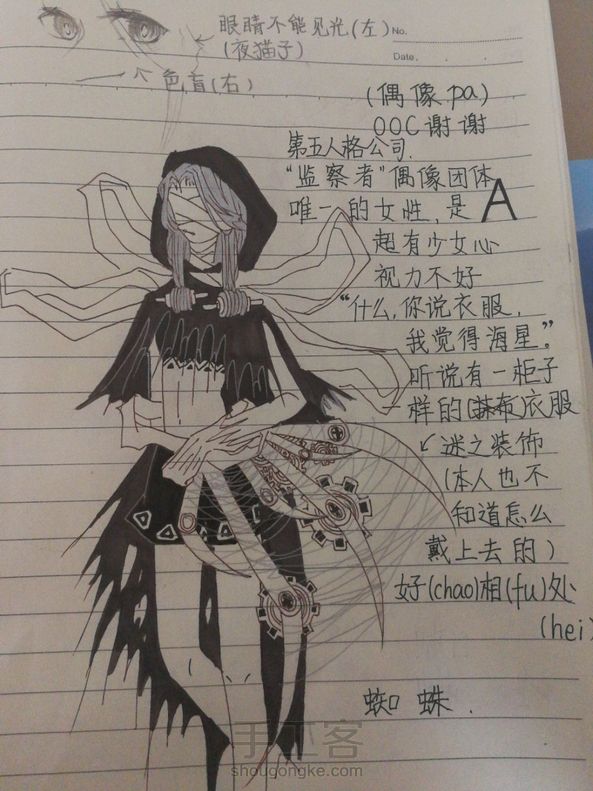 眼睛不能见光(左)
(夜猫子)
No.
Date.
个色盲(右)
(偶像pa)
OOC谢谢
第五人格公司.
"监察者"偶像团体
唯一的女性,是A
超有少女心
视力不好
"什么,你说衣服,
我觉得海星。"
听说有一柜子
一样的(抹布)衣服
↙迷之装饰
(本人也不
知道怎么
戴上去的)
好(chao)相(fu)处
(hei)
蜘蛛.
手工客
shougongke.com